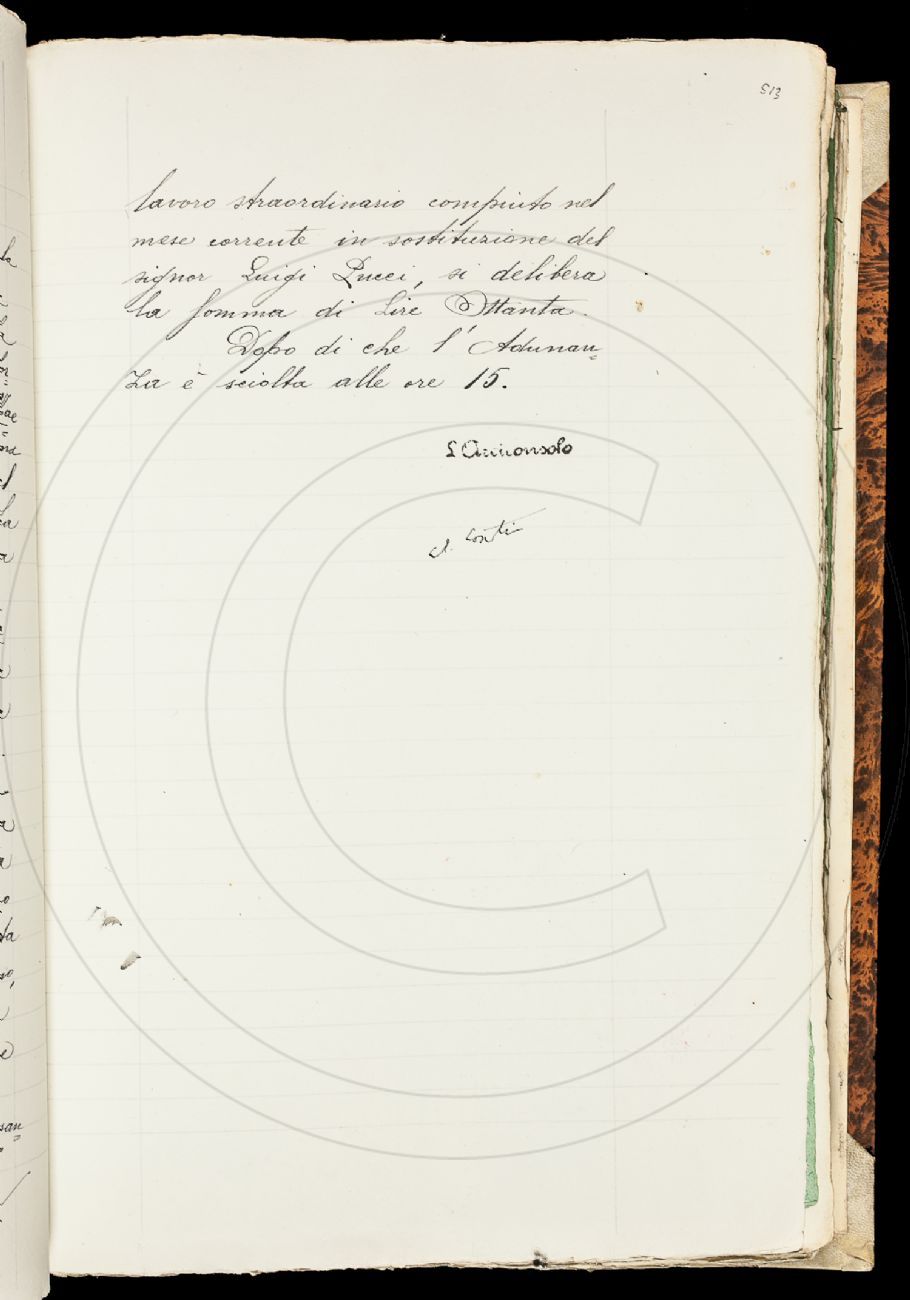 513
lavoro straordinario compiuto nel
mese corrente in sostituzione del
signor Luigi Pucci, si delibera
la somma di Lire Ottanta.
Dopo di che l'Adunan=
za è sciolta alle ore 15.
L'Arciconsolo
Conti